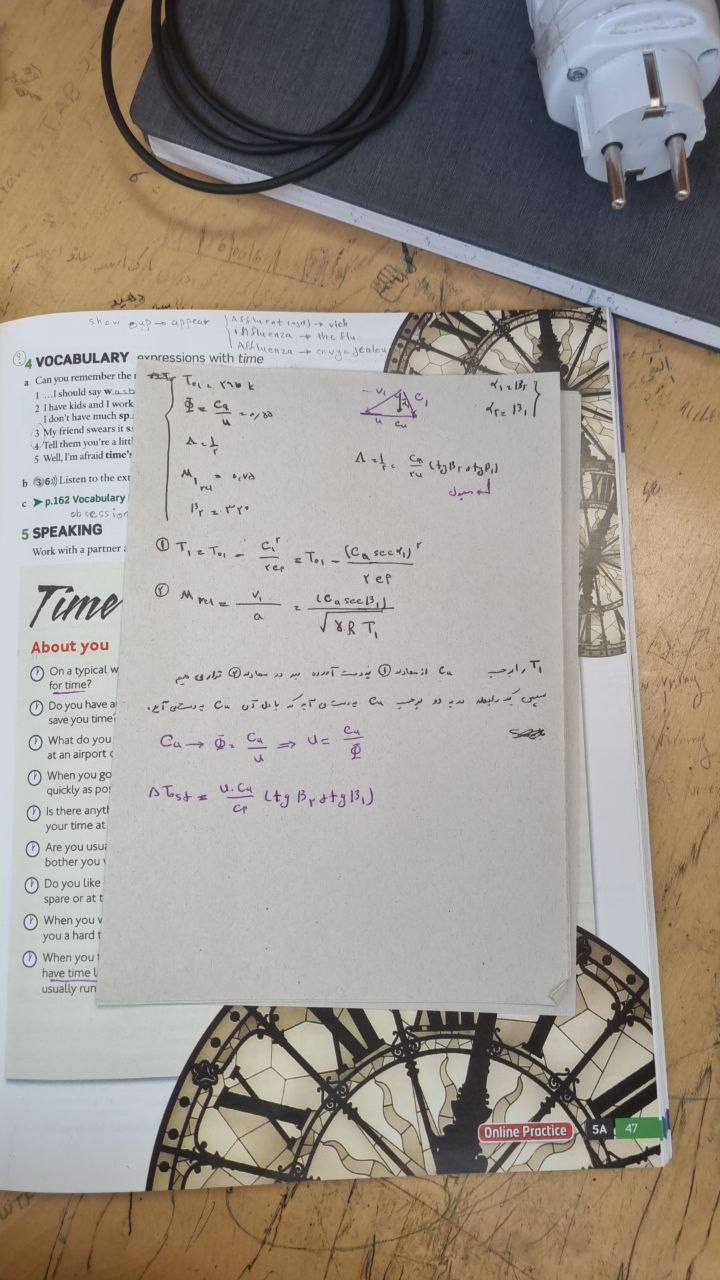 show up → appear
Affluent → rich
influenza → the flu
Affluenza →
4 VOCABULARY expressions with time
a Can you remember the
1 ...I should say w
2 I have kids and I work
I don't have much sp
3 My friend swears it s
4 Tell them you're a litt
5 Well, I'm afraid time's
b 3.6 Listen to the ext
c p.162 Vocabulary
obsession
5 SPEAKING
Work with a partner a
Time
About you
On a typical w
for time?
Do you have a
save you time?
What do you
at an airport o
When you go
quickly as pos
Is there anyt
your time at
Are you usua
bother you w
Do you like
spare or at t
When you w
you a hard t
When you t
have time l
usually run
T₀₁ = ۲۹۰ K
Φ = Ca/u = ۰,۵۵
Λ = ۱/۲
M₁rel = ۰,۷۵
β₂ = ۳۲۰
V₁ C₁
u Ca
α₁ = β₂
α₂ = β₁
Λ = ۱/۲ = Ca/۲u (tgβ₂ + tgβ₁)
① T₁ = T₀₁ − C₁²/۲cp = T₀₁ − (Ca sec α₁)²/۲cp
② Mrel = V₁/a = (Ca sec β₁)/√(γRT₁)
T₁ را برحسب Ca از معادله ① به دست آورده و در معادله ② قرار می دهیم
سپس یک رابطه برحسب Ca به دست می آید که با حل آن Ca به دست می آید.
Ca → Φ = Ca/u ⇒ u = Ca/Φ
ΔT₀st = u.Ca/cp (tgβ₂ + tgβ₁)
Online Practice 5A 47